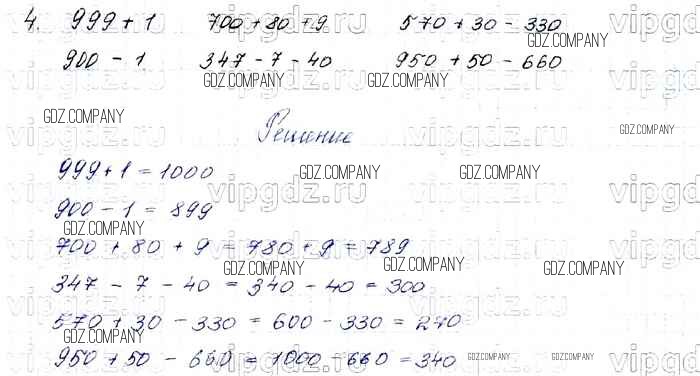 4. 999 + 1 700 + 80 + 9 570 + 30 - 330
GDZ.COMPANY
900 - 1 347 - 7 - 40 950 + 50 - 660
GDZ.COMPANY GDZ.COMPANY
GDZ.COMPANY
GDZ.COMPANY
Решение
999 + 1 = 1000
GDZ.COMPANY GDZ.COMPANY
900 - 1 = 899
GDZ.COMPANY
700 + 80 + 9 = 780 + 9 = 789
GDZ.COMPANY GDZ.COMPANY GDZ.COMPANY
347 - 7 - 40 = 340 - 40 = 300
570 + 30 - 330 = 600 - 330 = 270
GDZ.COMPANY
950 + 50 - 660 = 1000 - 660 = 340
GDZ.COMPANY GDZ.COMPANY GDZ.COMPANY
vipgdz.ru